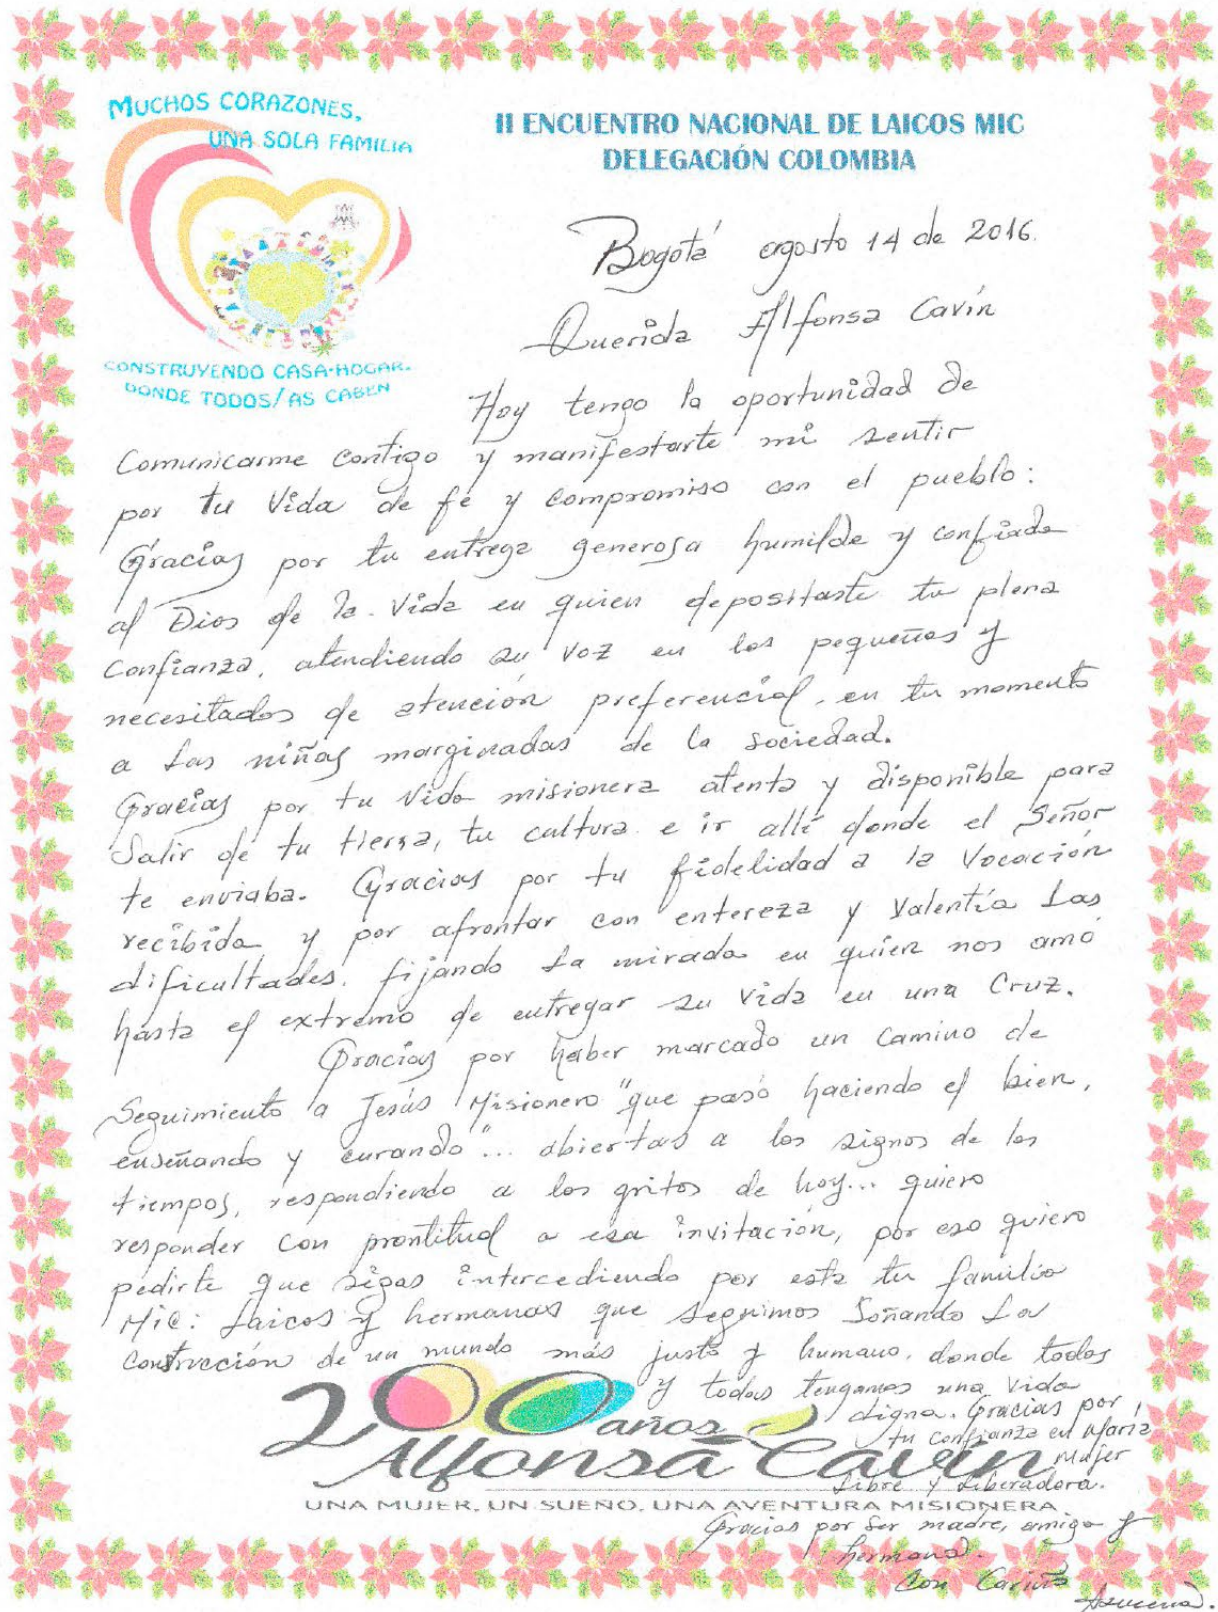 MUCHOS CORAZONES,
UNA SOLA FAMILIA
CONSTRUYENDO CASA-HOGAR.
DONDE TODOS/AS CABEN
II ENCUENTRO NACIONAL DE LAICOS MIC
DELEGACIÓN COLOMBIA
Bogotá agosto 14 de 2016.
Querida Alfonsa Cavín
Hoy tengo la oportunidad de
Comunicarme contigo y manifestarte mi sentir
por tu Vida de fé y compromiso con el pueblo:
Gracias por tu entrega generosa humilde y confiada
al Dios de la Vida en quien depositaste tu plena
confianza, atendiendo su voz en los pequeños y
necesitados de atención preferencial, en tu momento
a las niñas marginadas de la sociedad.
Gracias por tu vida misionera atenta y disponible para
Salir de tu tierra, tu cultura e ir allí donde el Señor
te enviaba. Gracias por tu fidelidad a la Vocación
recibida y por afrontar con entereza y valentía las
dificultades, fijando la mirada en quien nos amó
hasta el extremo de entregar su vida en una Cruz.
Gracias por haber marcado un camino de
Seguimiento a Jesús Misionero "que pasó haciendo el bien,
enseñando y curando"... abiertas a los signos de los
tiempos, respondiendo a los gritos de hoy... quiero
responder con prontitud a esa invitación, por eso quiero
pedirte que sigas intercediendo por esta tu familia
Mic: Laicos y hermanas que seguimos Soñando la
construcción de un mundo más justo y humano, donde todos
y todas tengamos una vida
digna. Gracias por
tu confianza en María
Mujer
Libre y Liberadora.
200 años
Alfonsa Cavín
UNA MUJER, UN SUEÑO, UNA AVENTURA MISIONERA
Gracias por ser madre, amiga y
hermana.
Con Cariño
Azucena.